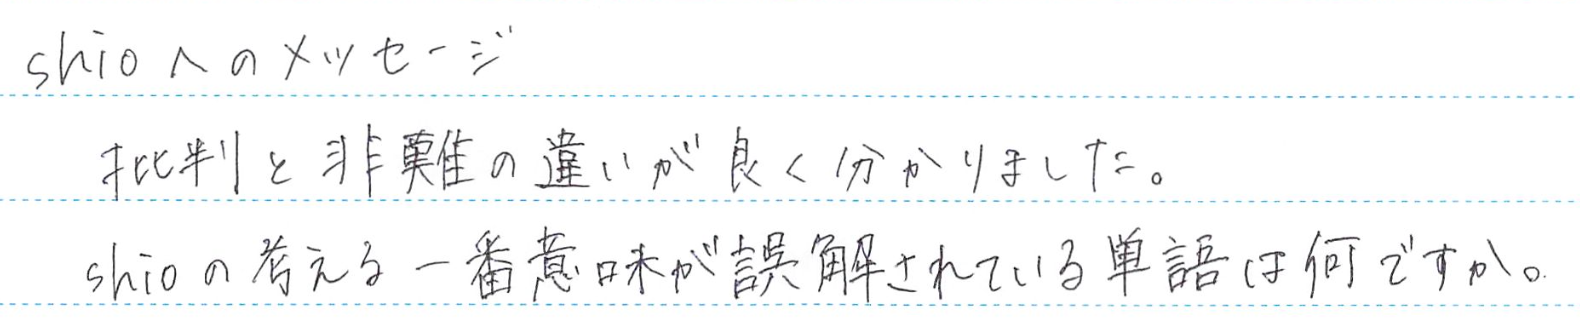 shioへのメッセージ
批判と非難の違いが良く分かりました。
shioの考える一番意味が誤解されている単語は何ですか。